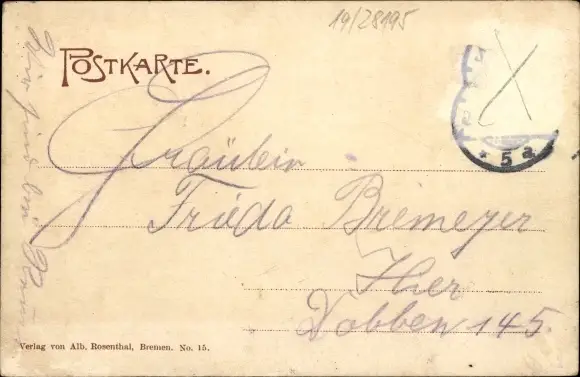 19/28195
POSTKARTE.
* 5 a.
Fräulein
Frieda Bremeyer
Hier
Dobben 145.
Verlag von Alb. Rosenthal, Bremen. No. 15.